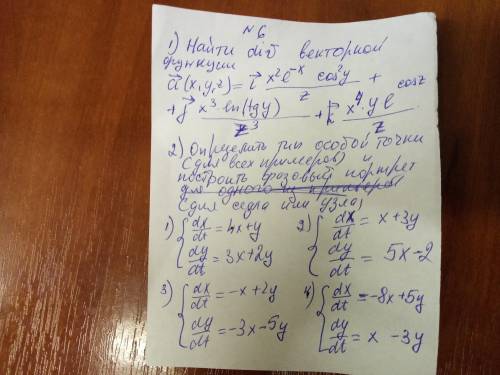 № 6
1) Найти div векторной
функции
a⃗(x,y,z) = i⃗ x²e⁻ˣ cos²y / z +
+ j⃗ x³ ln(tgy) / z³ + k⃗ x⁴·y e^cosz / z
2) Определить тип особой точки
(для всех примеров) и
построить фазовый портрет
(для седла или узла)
1) { dx/dt = 4x+y
dy/dt = 3x+2y
2) { dx/dt = x+3y
dy/dt = 5x-2
3) { dx/dt = -x+2y
dy/dt = -3x-5y
4) { dx/dt = -8x+5y
dy/dt = x -3y